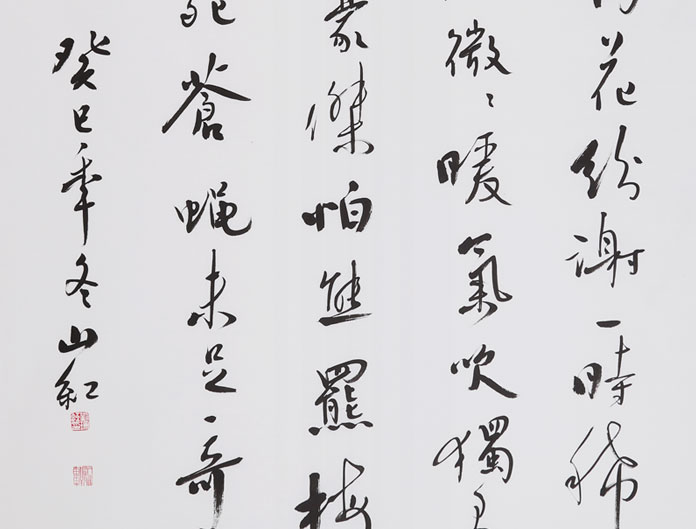 花紛謝一時稀
微々暖氣吹獨
豪傑怕熊羆梅
死蒼蝇未足奇
癸巳年冬山紅